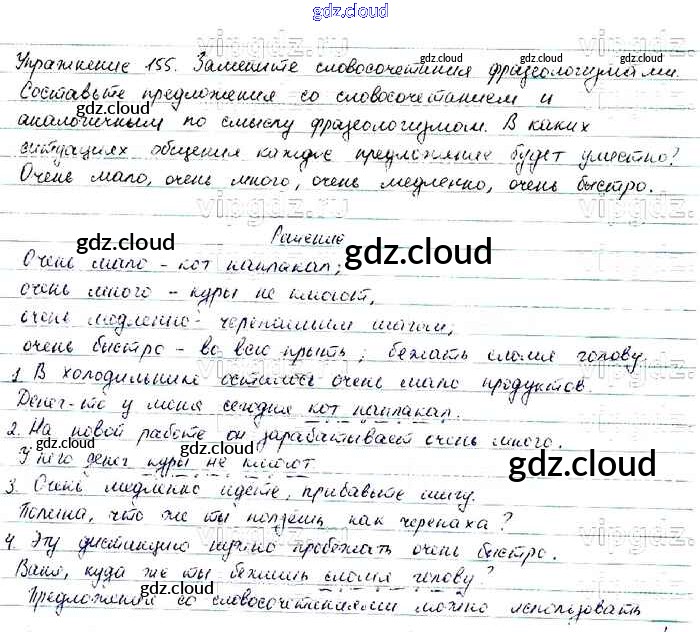 gdz.cloud
Упражнение 155. Замените словосочетания фразеологизмами.
Составьте предложения со словосочетанием и
аналогичным по смыслу фразеологизмом. В каких
ситуациях общения каждое предложение будет уместно?
Очень мало, очень много, очень медленно, очень быстро.
Решение
Очень мало - кот наплакал;
очень много - куры не клюют,
очень медленно - черепашьим шагом;
очень быстро - во всю прыть; бежать сломя голову.
1. В холодильнике осталось очень мало продуктов.
Денег-то у меня сегодня кот наплакал.
2. На новой работе он зарабатывает очень много.
У него денег куры не клюют
3. Очень медленно идёте, прибавьте шагу.
Полина, что же ты ползёшь как черепаха?
4. Эту дистанцию нужно пробежать очень быстро.
Ваня, куда же ты бежишь сломя голову?
Предложения со словосочетаниями можно использовать